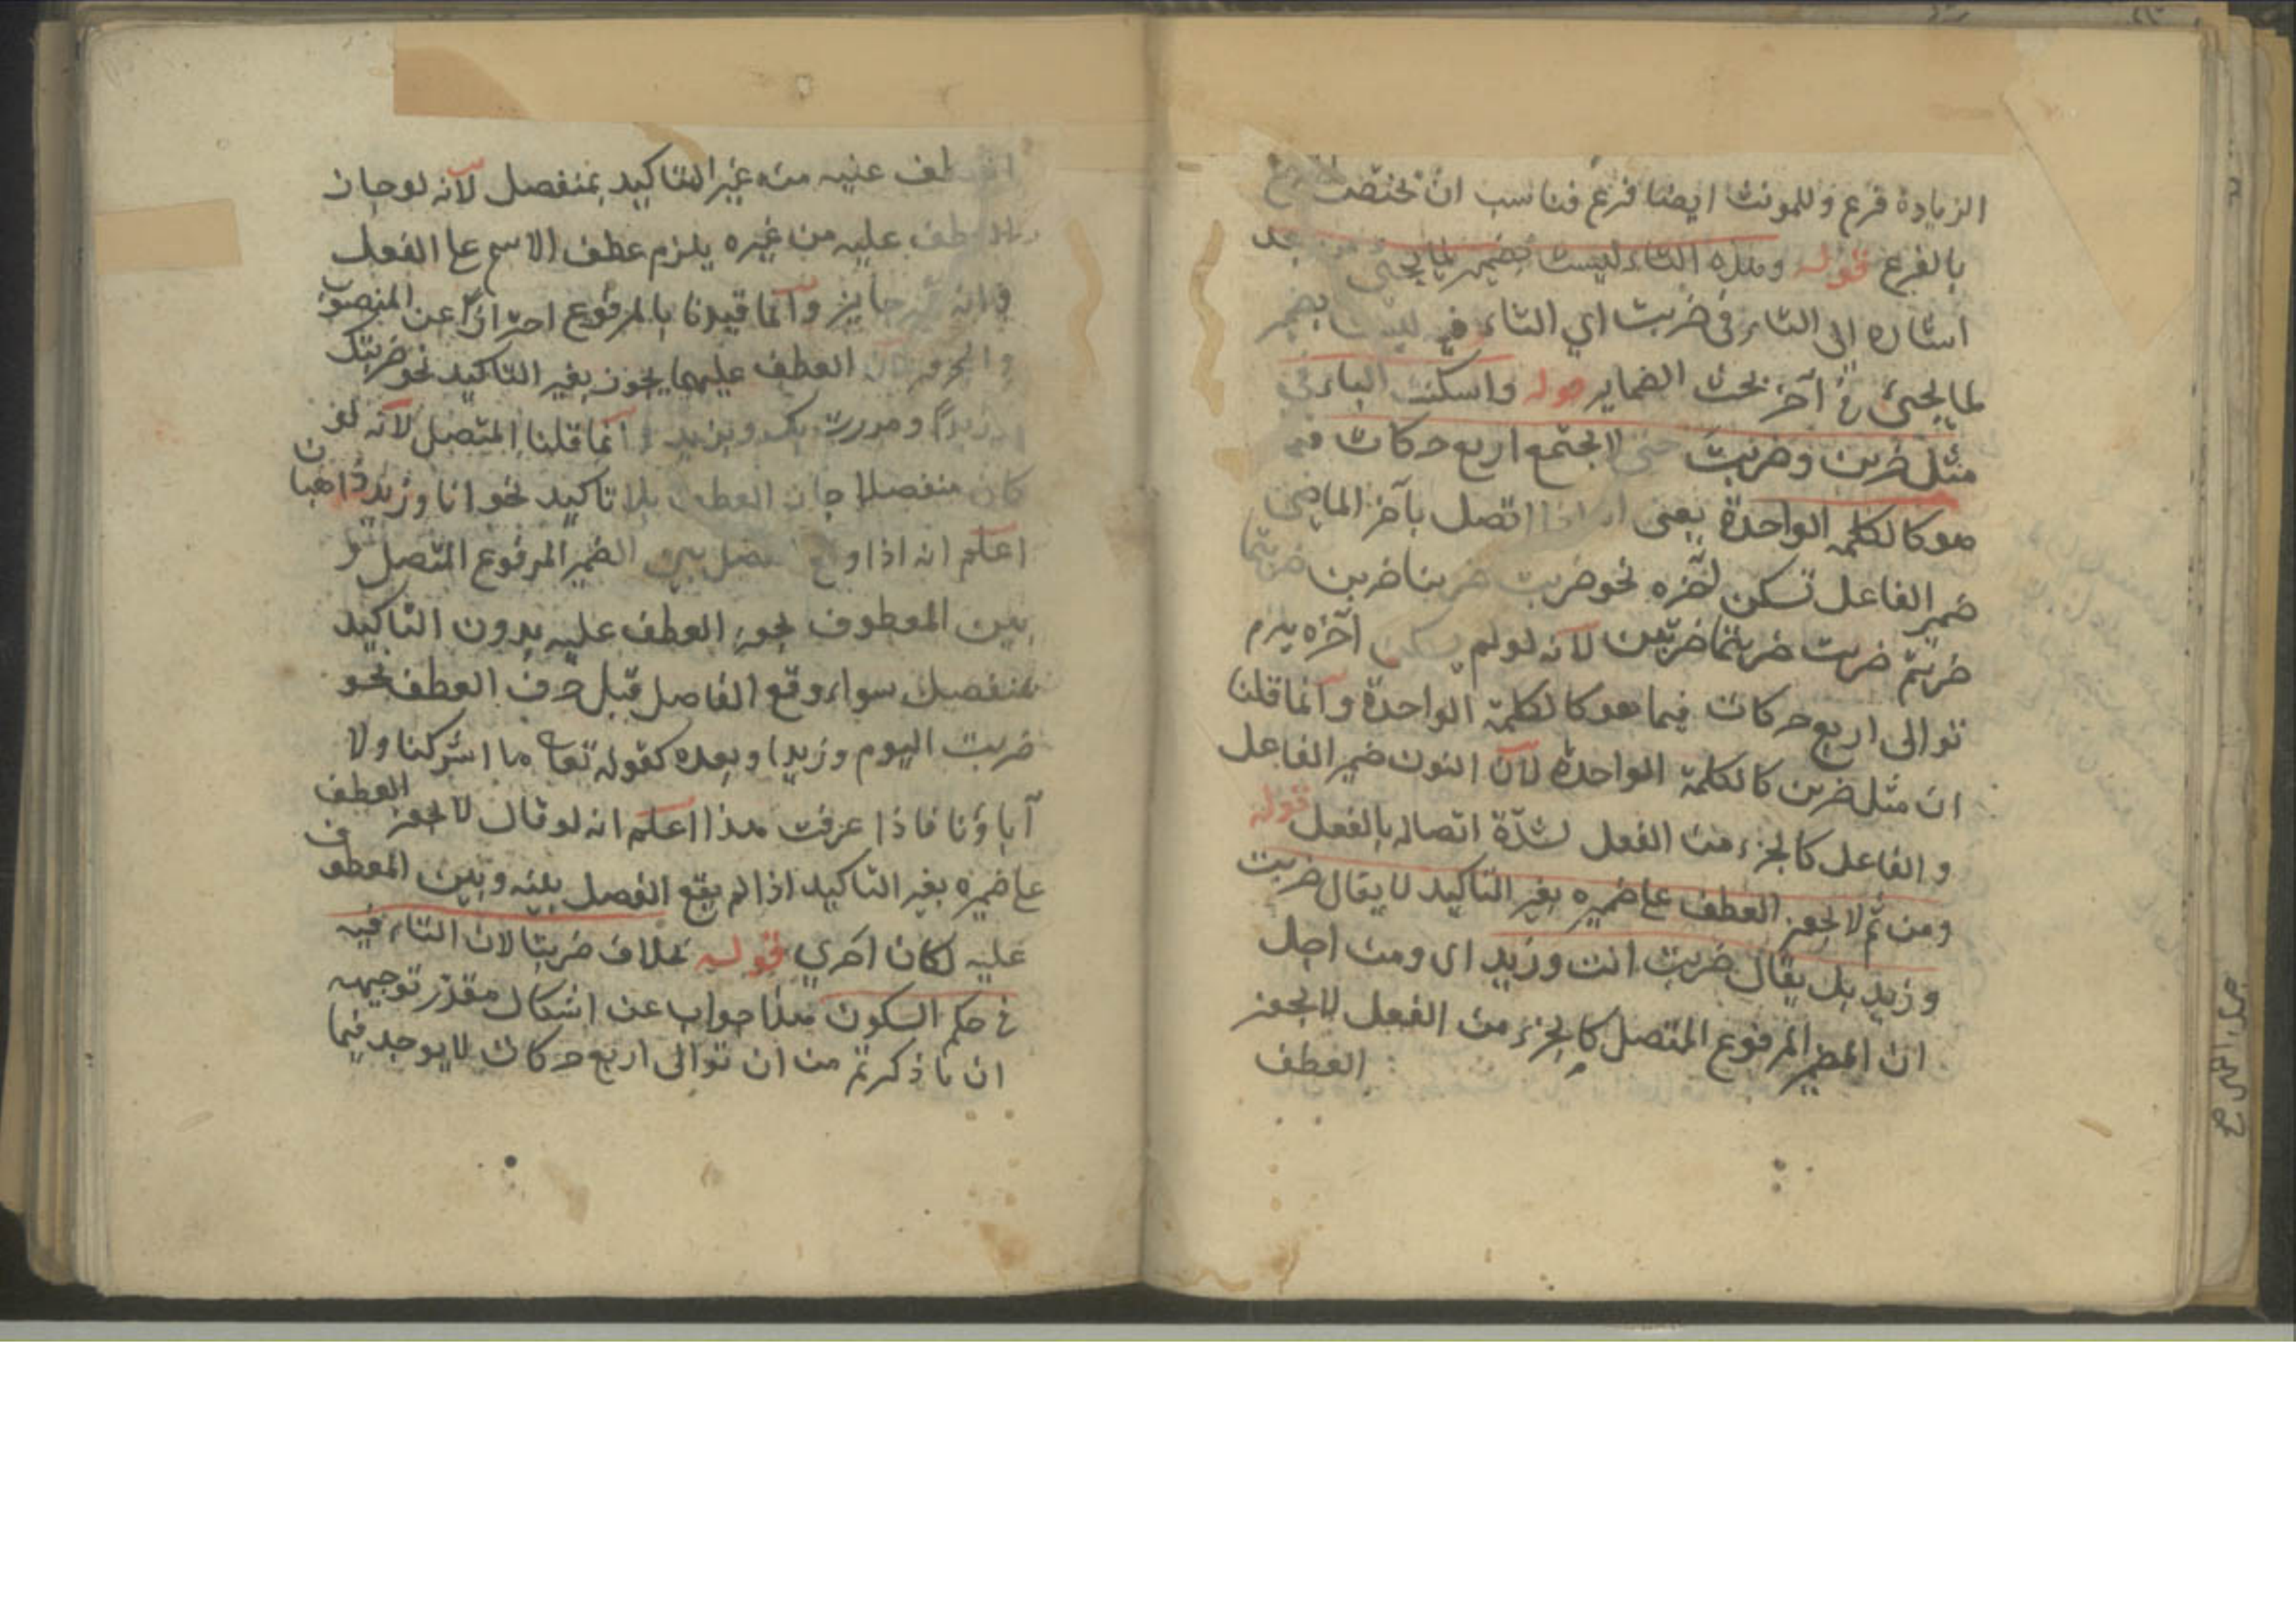 الزيادة فرع وللمونث ايضا فرع فناسب ان تختص الفرع
بالفرع قوله وهذه التاء ليست بضمير لما يجئ
اشاره الى التاء في ضربت اي التاء فيه ليست بضمير
لما يجئ في آخر بحث الضماير قوله واسكنت الباء في
مثل ضربن وضربت حتى لا يجتمع اربع حركات فيما
هو كالكلمة الواحدة يعنى اذا اتصل بآخر الماضي
ضمير الفاعل تسكن آخره نحو ضربت ضربنا ضربن ضربتما
ضربتم ضربت ضربتما ضربتن لانه لو لم يسكن آخره يلزم
توالى اربع حركات فيما هو كالكلمة الواحدة وانما قلنا
ان مثل ضربن كالكلمة الواحدة لان النون ضمير الفاعل
و الفاعل كالجزء من الفعل لشدة اتصاله بالفعل قوله
ومن ثم لا يجوز العطف على ضميره بغير التاكيد لا يقال ضربت
وزيد بل يقال ضربت انت وزيد اى ومن اجل
ان المضمر المرفوع المتصل كالجزء من الفعل لا يجوز
العطف
العطف عليه من غير التاكيد بمنفصل لانه لو جاز
العطف عليه من غيره يلزم عطف الاسم على الفعل
وانه غير جايز وانما قيدنا بالمرفوع احترازا عن المنصوب
والمجرور فان العطف عليهما يجوز بغير التاكيد نحو ضربتك
وزيدا ومررت بك وبزيد وانما قلنا المتصل لانه لو
كان منفصلا جاز العطف بلا تاكيد نحو انا وزيد ذاهبان
اعلم انه اذا وقع الفصل بين الضمير المرفوع المتصل و
بين المعطوف يجوز العطف عليه بدون التاكيد
بمنفصل سواء وقع الفاصل قبل حرف العطف نحو
ضربت اليوم وزيدا وبعده كقوله تعا ما اشركنا ولا
آباؤنا فاذا عرفت هذا اعلم انه لو قال لا يجوز العطف
على ضميره بغير التاكيد اذا لم يقع الفصل بينه وبين المعطوف
عليه لكان احرى قوله بخلاف ضربتا لان التاء فيه
في حكم السكون هذا جواب عن اشكال مقدر توجيهه
ان ما ذكرتم من ان توالى اربع حركات لا يوجد فيما